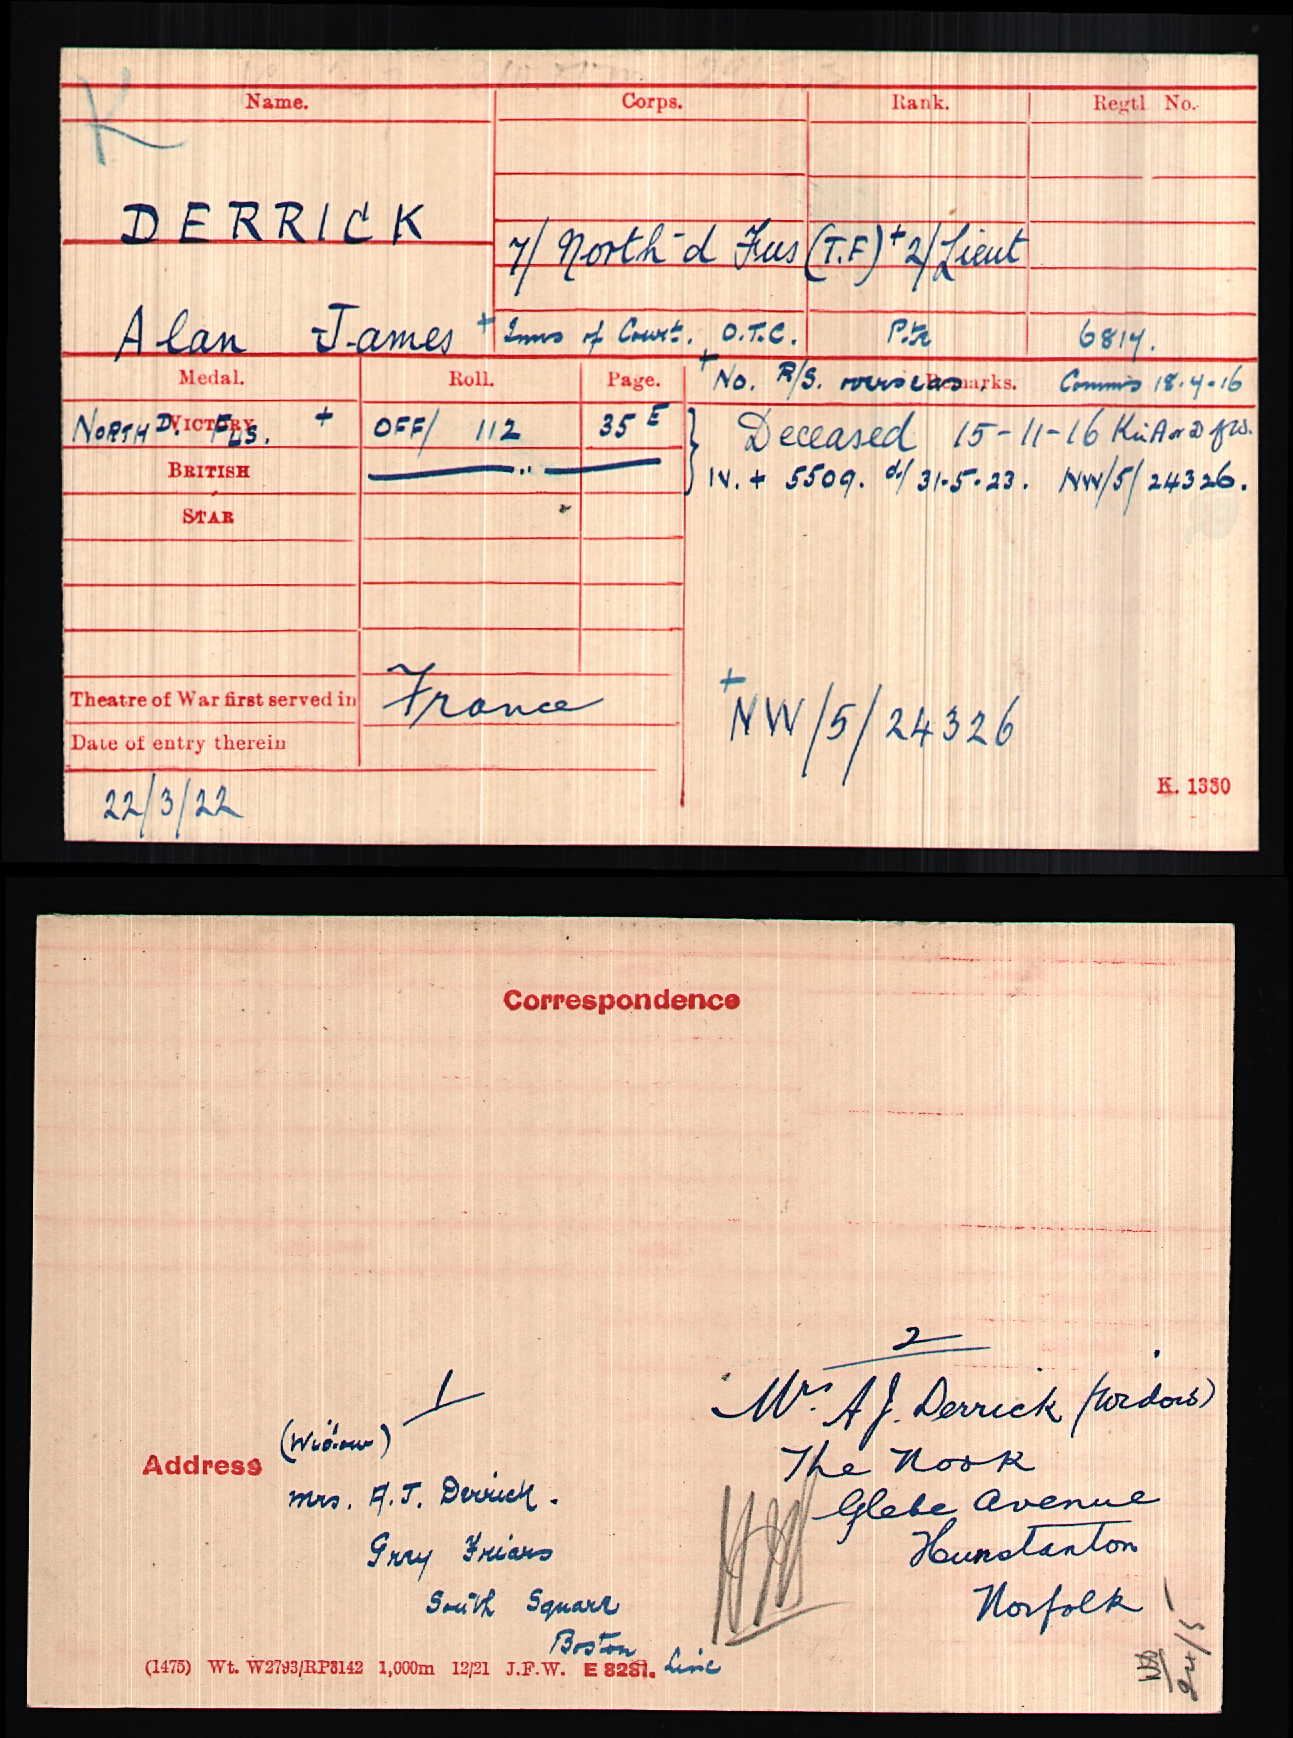 K
Name. Corps. Rank. Regtl No.
DERRICK
7/ North-d Fus (T.F) + 2/Lieut
Alan James + Inns of Court. O.T.C. Pte 6814.
Medal. Roll. Page. + No. R/S. overseas. Remarks. Commis 18.4.16
VICTORY NORTHD. FUS. + OFF/ 112 35E } Deceased 15-11-16 KinA or D of W.
BRITISH — " — IV. + 5509. d/ 31.5.23. NW/5/24326.
STAR
Theatre of War first served in France
+ NW/5/24326
Date of entry therein
K. 1380
22/3/22
Correspondence
1
(Widow)
Address
Mrs. A.J. Derrick.
Gray Friars
South Square
Boston
Linc
2
Mrs. A J. Derrick (Widow)
The Nook
Glebe Avenue
Hunstanton
Norfolk
24/5
(1475) Wt. W2793/RP3142 1,000m 12/21 J.F.W. E 8281.